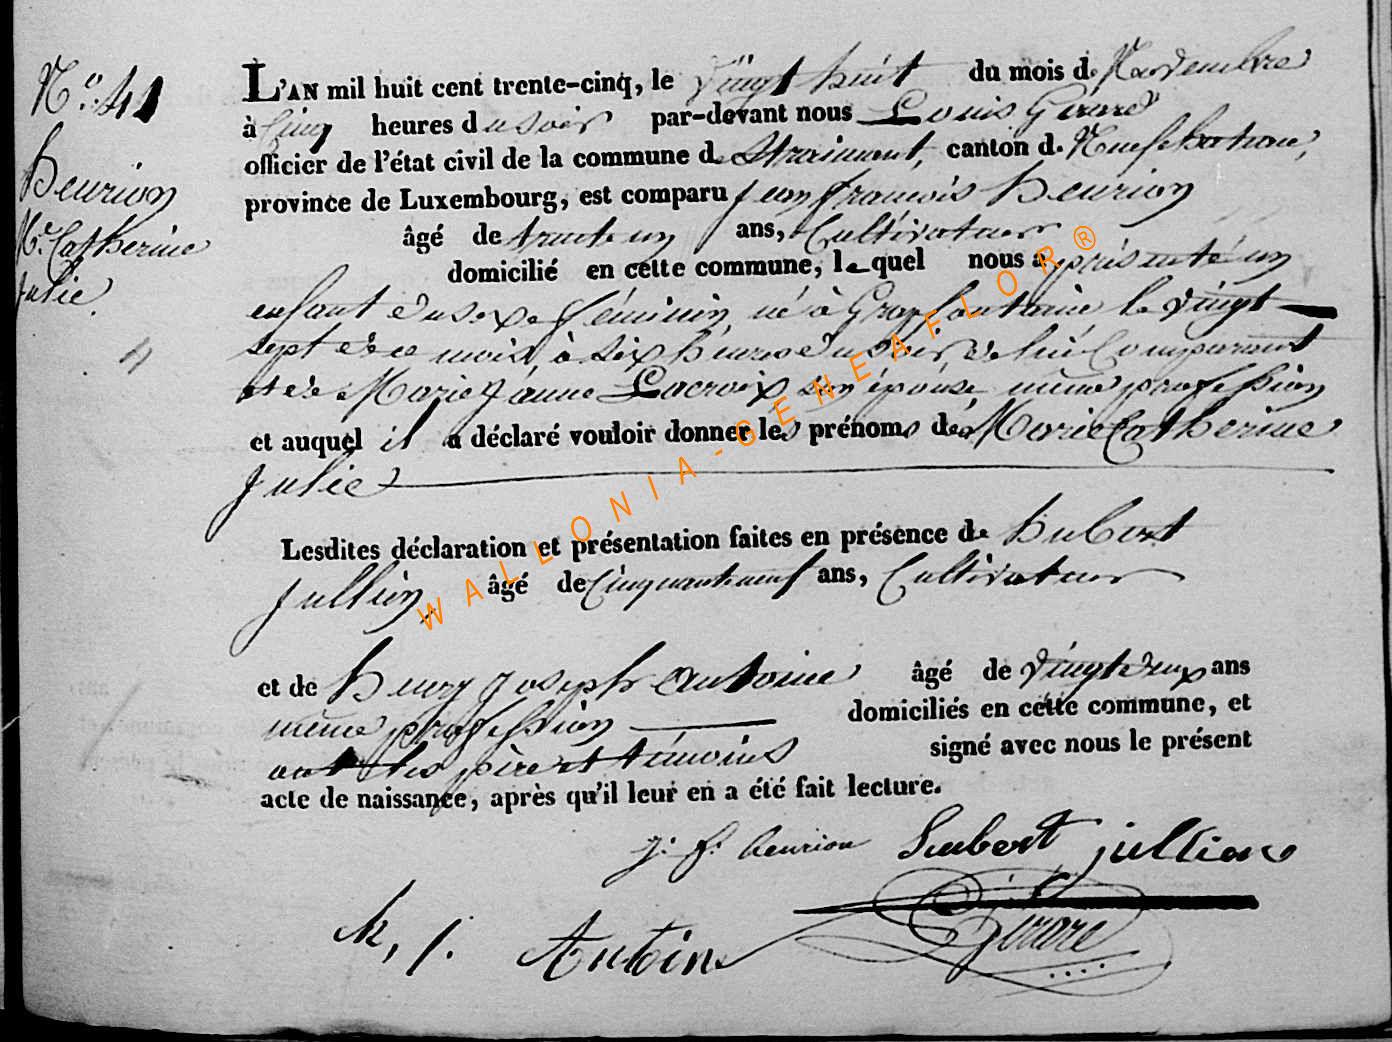 N.º 41
Henrion
M.e Catherine
Julie.
L'AN mil huit cent trente-cinq, le vingt huit du mois de Novembre
à Cinq heures du soir par-devant nous Louis Girard
officier de l'état civil de la commune de Straimont, canton de Neufchateau,
province de Luxembourg, est comparu Jean françois henrion
âgé de trente un ans, Cultivateur
domicilié en cette commune, lequel nous a présenté un
enfant du sexe féminin, né à Grapfontaine le vingt
sept de ce mois, à six heures du soir de lui Comparant
et de Marie Jeanne Lacroix son épouse même profession
et auquel il a déclaré vouloir donner les prénoms de Marie Catherine
Julie
Lesdites déclaration et présentation faites en présence de hubert
Jullien, âgé de Cinquante neuf ans, Cultivateur
et de henry Joseph Antoine âgé de vingt deux ans
même profession domiciliés en cette commune, et
ont les père et témoins signé avec nous le présent
acte de naissance, après qu'il leur en a été fait lecture.
J. f. henrion hubert jullien
h, j. Antoin
Girard
WALLONIA-GENEAFLOR®